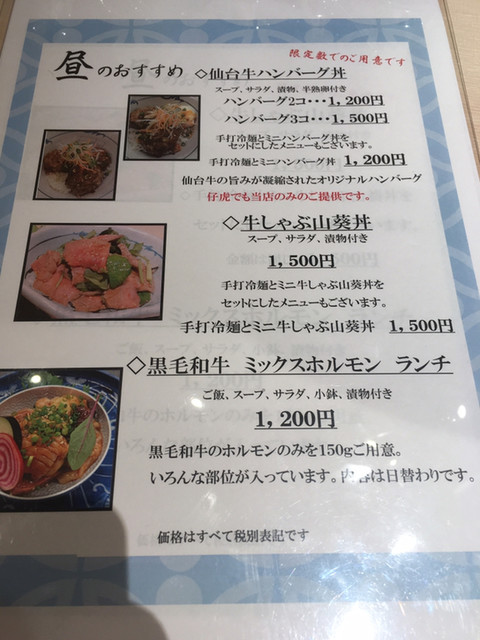 昼のおすすめ
限定数でのご用意です
◇仙台牛ハンバーグ丼
スープ、サラダ、漬物、半熟卵付き
ハンバーグ2コ・・・1,200円
ハンバーグ3コ・・・1,500円
手打冷麺とミニハンバーグ丼を
セットにしたメニューもございます。
手打冷麺とミニハンバーグ丼 1,200円
仙台牛の旨みが凝縮されたオリジナルハンバーグ
仔虎でも当店のみのご提供です。
◇牛しゃぶ山葵丼
スープ、サラダ、漬物付き
1,500円
手打冷麺とミニ牛しゃぶ山葵丼を
セットにしたメニューもございます。
手打冷麺とミニ牛しゃぶ山葵丼 1,500円
◇黒毛和牛 ミックスホルモン ランチ
ご飯、スープ、サラダ、小鉢、漬物付き
1,200円
黒毛和牛のホルモンのみを150gご用意。
いろんな部位が入っています。内容は日替わりです。
価格はすべて税別表記です